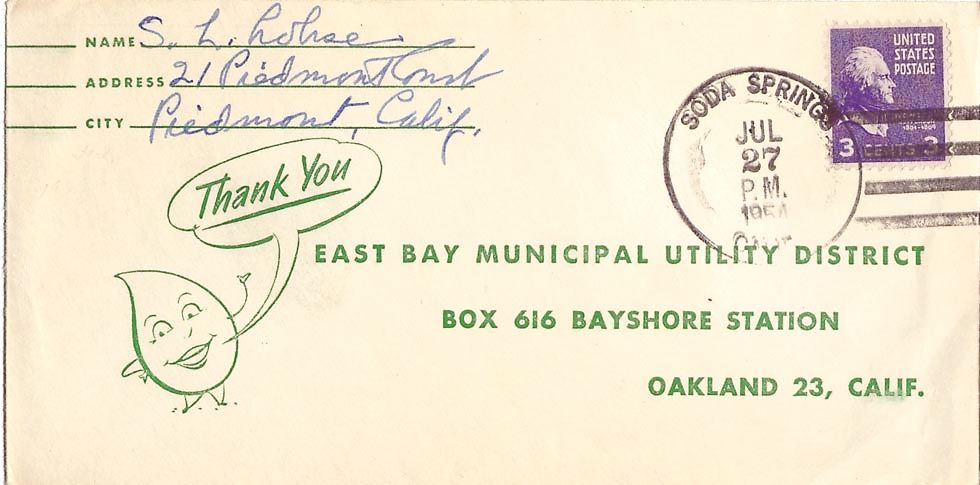 NAME S. L. Lohse
ADDRESS 21 Piedmont Court
CITY Piedmont, Calif.
Thank You
UNITED
STATES
POSTAGE
3 CENTS 3
SODA SPRINGS
JUL
27
P.M.
1954
CALIF.
EAST BAY MUNICIPAL UTILITY DISTRICT
BOX 616 BAYSHORE STATION
OAKLAND 23, CALIF.